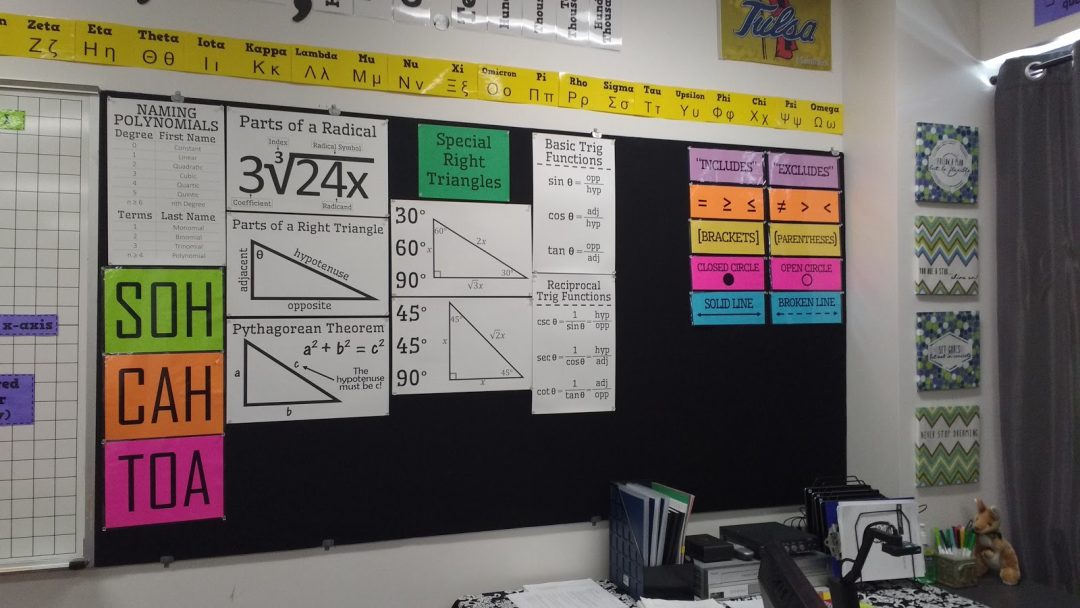 Tulsa
Zeta Eta Theta Iota Kappa Lambda Mu Nu Xi Omicron Pi Rho Sigma Tau Upsilon Phi Chi Psi Omega
Ζζ Ηη Θθ Ιι Κκ Λλ Μμ Νν Ξξ Οο Ππ Ρρ Σσ Ττ Υυ Φφ Χχ Ψψ Ωω
NAMING
POLYNOMIALS
Degree First Name
0 Constant
1 Linear
2 Quadratic
3 Cubic
4 Quartic
5 Quintic
n ≥ 6 nth Degree
Terms Last Name
1 Monomial
2 Binomial
3 Trinomial
n ≥ 4 Polynomial
SOH
CAH
TOA
Parts of a Radical
Index Radical Symbol
3∛24x
Coefficient Radicand
Parts of a Right Triangle
adjacent θ hypotenuse
opposite
Pythagorean Theorem
a² + b² = c²
a c
The
hypotenuse
must be c!
b
Special
Right
Triangles
30°
60°
90°
60°
x 2x
30°
√3x
45°
45°
90°
45°
x √2x
45°
x
Basic Trig
Functions
sin θ = opp/hyp
cos θ = adj/hyp
tan θ = opp/adj
Reciprocal
Trig Functions
csc θ = 1/sin θ = hyp/opp
sec θ = 1/cos θ = hyp/adj
cot θ = 1/tan θ = adj/opp
"INCLUDES" "EXCLUDES"
= ≥ ≤ ≠ > <
[BRACKETS] (PARENTHESES)
CLOSED CIRCLE OPEN CIRCLE
SOLID LINE BROKEN LINE
x-axis
NEVER STOP DREAMING